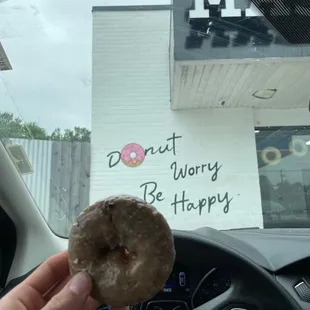 Donut
Worry
Be
Happy.